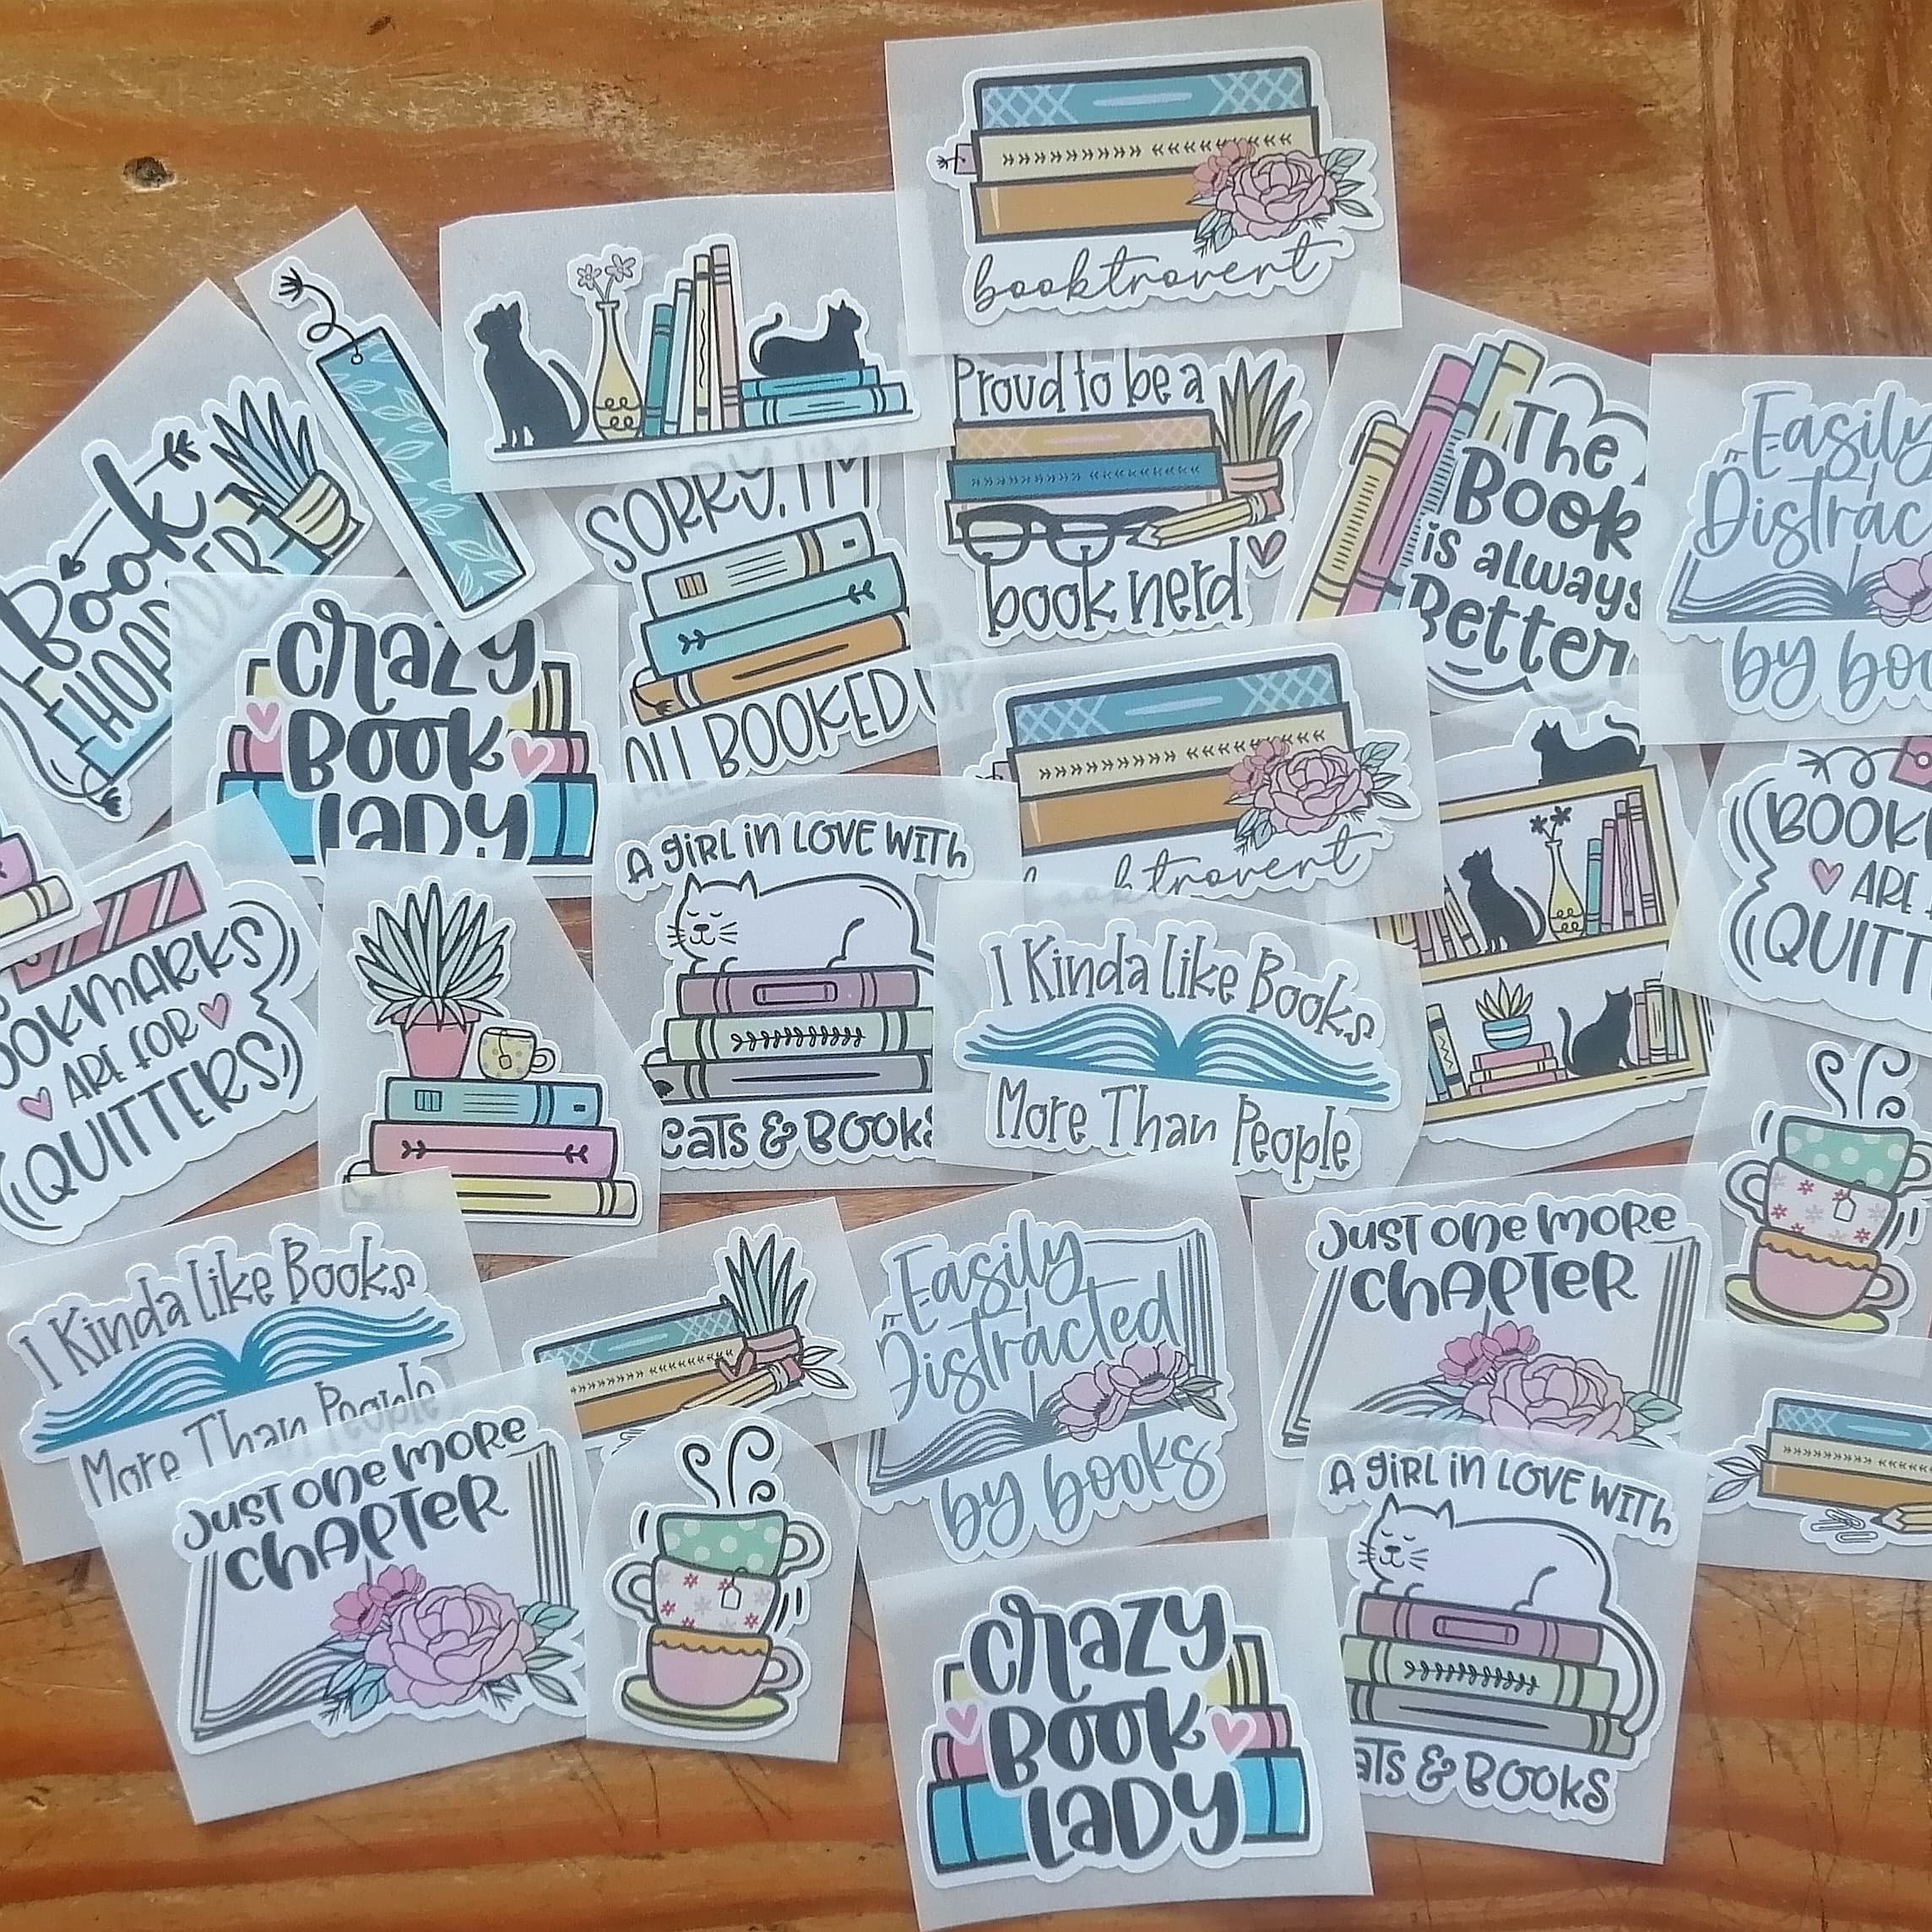 booktrovert
Proud to be a
book nerd
The
Book
is always
Better
Easily
by
Book
HOARDER
SORRY, I'M
ALL BOOKED UP
crazy
Book
Lady
booktrovert
A girl in Love with
cats & Books
I Kinda like Books
More Than People
ARE
ARE FOR
QUITTERS
I Kinda like Books
More Than People
Easily
Distracted
by books
Just one more
chapter
Just one more
chapter
A girl in Love with
& Books
crazy
Book
Lady